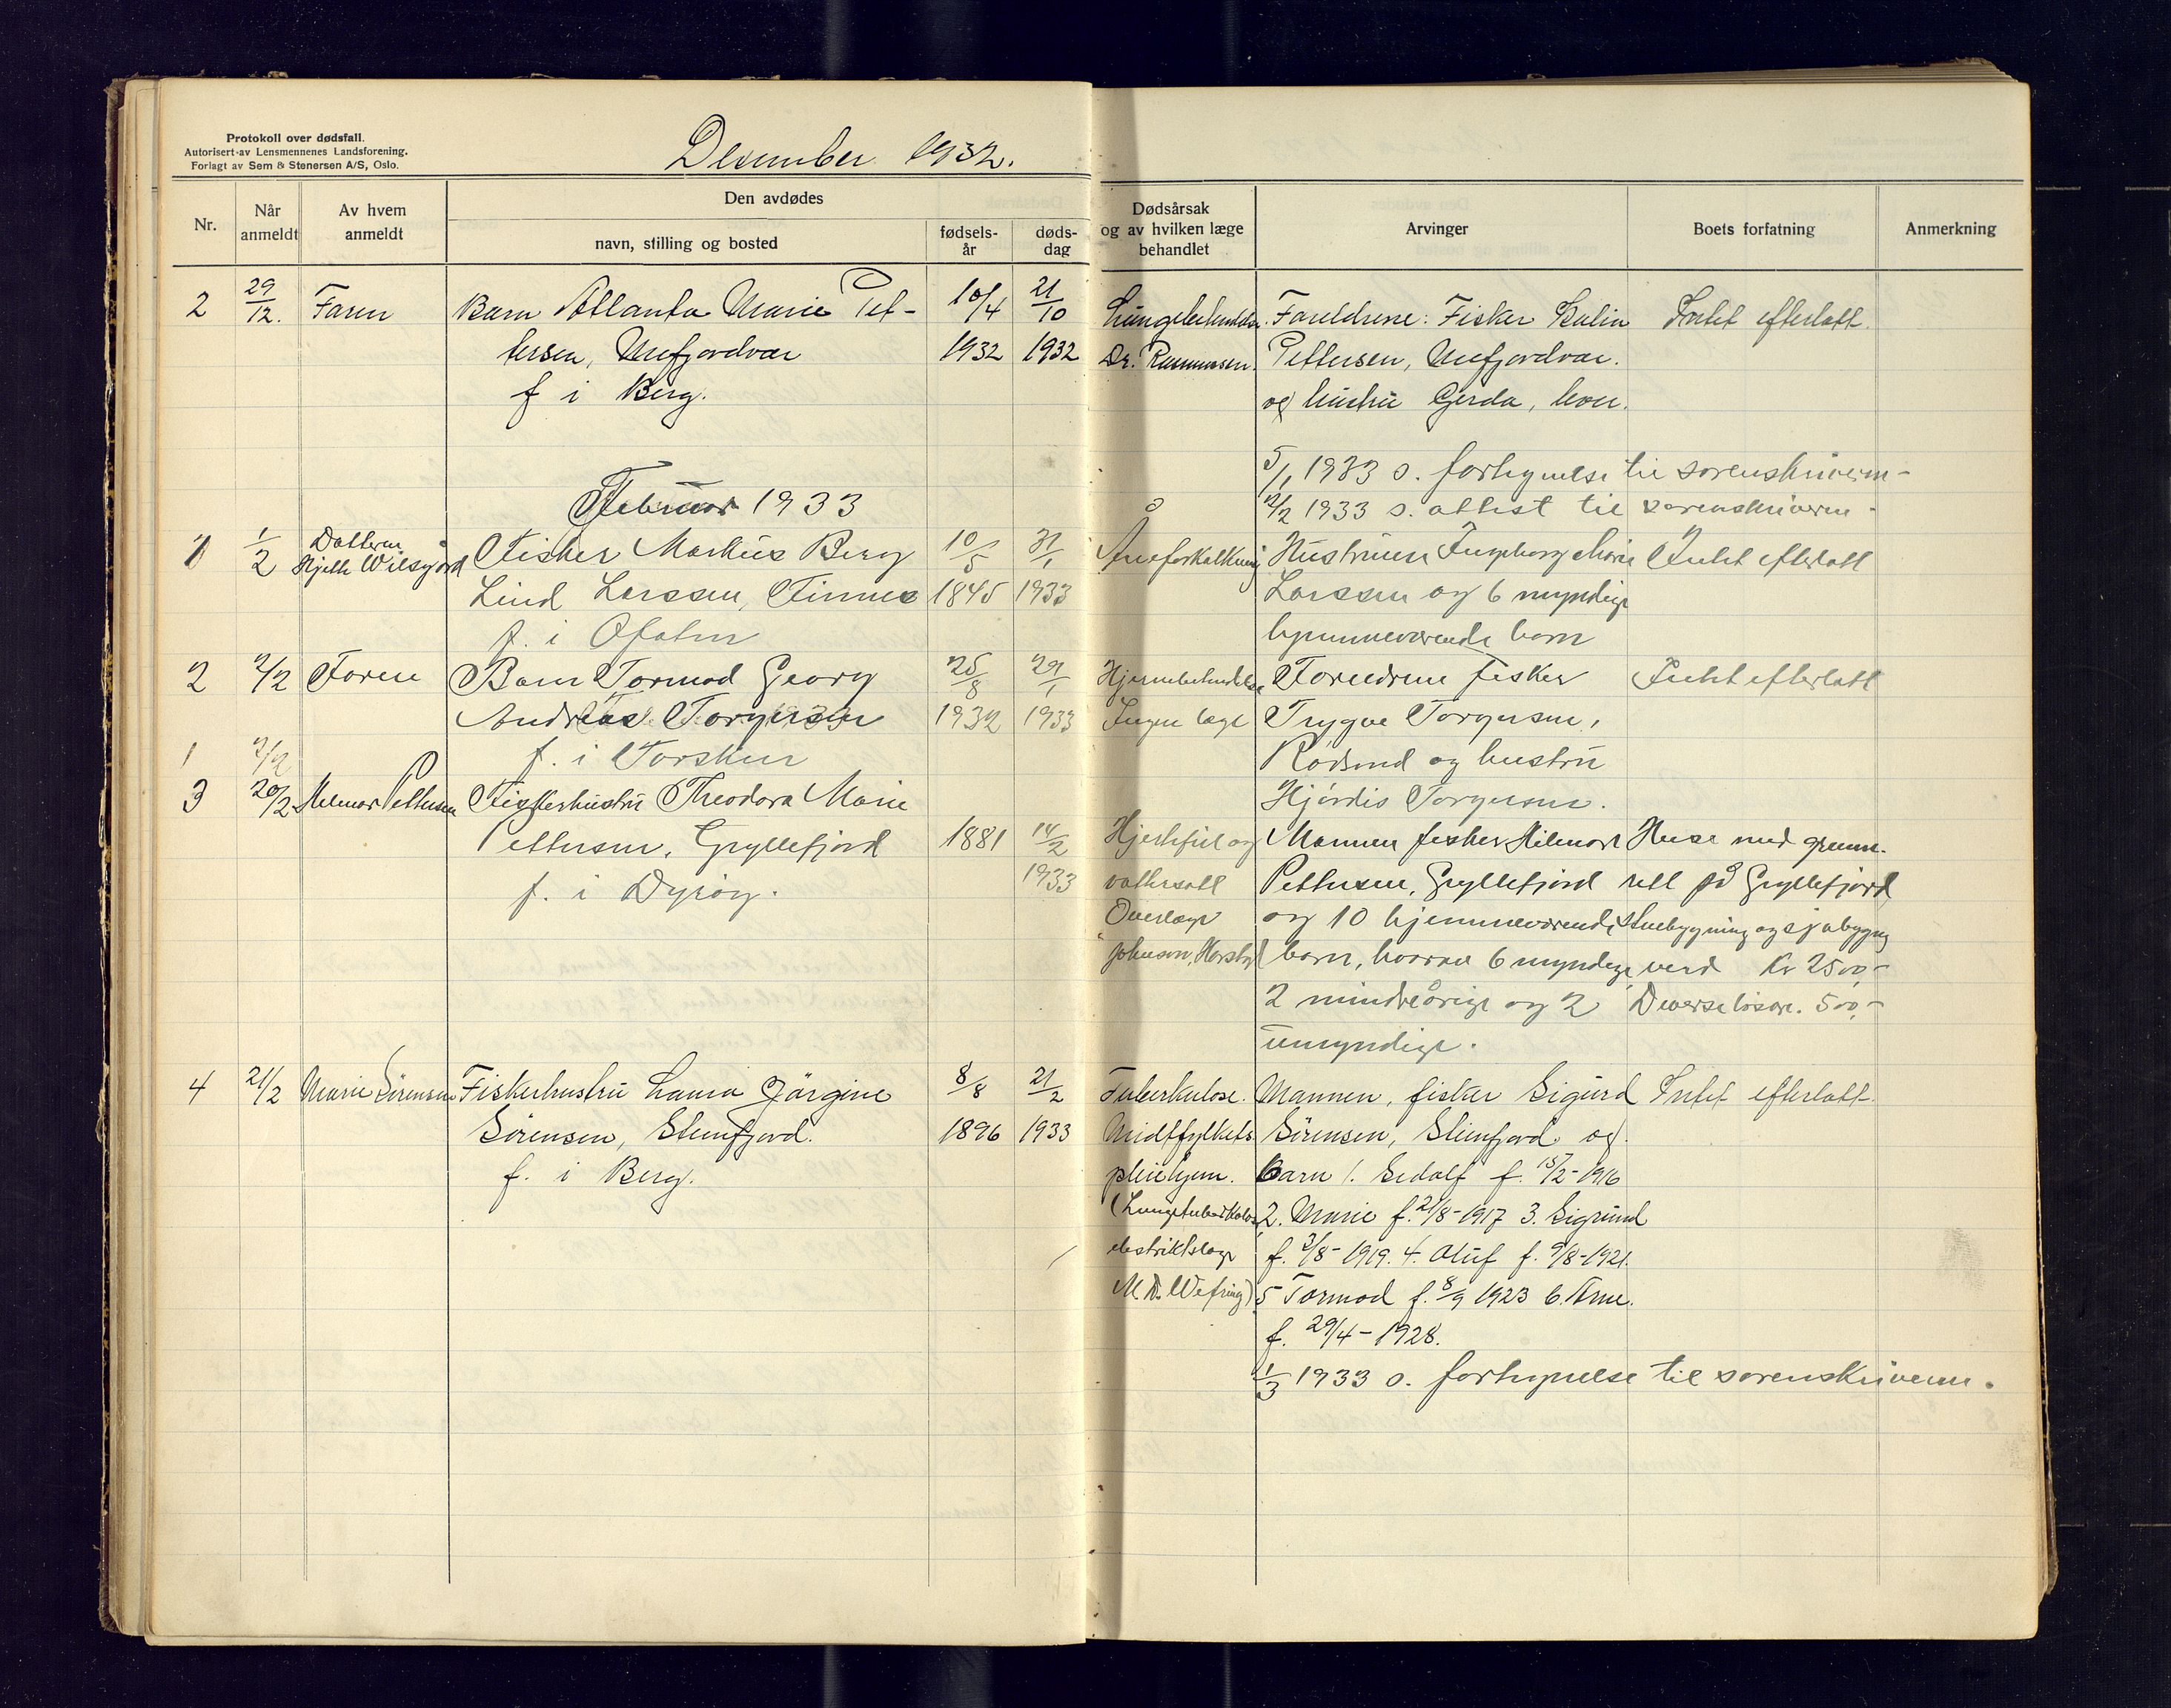 Protokoll over dødsfall.
Autorisert av Lensmennenes Landsforening.
Forlagt av Sem & Stenersen A/S, Oslo.
Desember 1932.
Nr.
Når anmeldt
Av hvem anmeldt
Den avdødes
navn, stilling og bosted
fødsels-år
døds-dag
Dødsårsak og av hvilken læge behandlet
Arvinger
Boets forfatning
Anmerkning
2 29/12. Faren Barn Atlanta Marie Pet- 10/4 21/10 Fareldrene: Fisker Intet efterlatt.
tersen, Mefjordvær 1932 1932 Dr. Rasmussen. Pettersen, Mefjordvær.
f i Berg. og hustru Gerda,
5/1 1933 s. forhynelse til sorenskriveren -
Februar 1933 2/2 1933 s. attest til sorenskriveren -
1 1/2 Datteren Fisker Markus Berg 10/5 31/1 Åreforkalkning Hustruen Ingeborg Marie Intet efterlatt
Lind Larssen, Finnes 1845 1933 Larssen og 6 myndige
f. i Ofoten hjemmeværende barn
2 2/2 Faren Barn Tormod Georg 25/8 29/1 Foreldrene fisker Intet efterlatt
Andreas Torgersen 1932 1933 Ingen læge Trygve Torgersen,
1 2/2 f. i Torsken Rödsand og hustru
3 20/2 Hilmar Pettersen Fiskerhustru Theodora Marie Hjördis Torgersen.
Pettersen, Gryllefjord 1881 14/2 Hjertefeil og Mannen fisker Hilmar Huse med grunn-
f. i Dyröy. 1933 vattersott Pettersen, Gryllefjord rett på Gryllefjord
Overlæge og 10 hjemmeværende stuebygning og sjøbygng
Johnson, Harstad barn, hvorav 6 myndige, verd Kr 2500,-
2 mindreårige og 2 Diverse løsøre. 500,-
umyndige.
4 21/2 Marie Sörensen Fiskerhustru Laura Jörgine 8/8 21/2 Tuberkulose. Mannen, fisker Sigurd Intet efterlatt.
Sörensen, Steinfjord. 1896 1933 Midtfylkets Sörensen, Steinfjord og
f. i Berg. pleiehjem. barn 1. Sedolf f. 15/2-1916
(Lungetuberkulose 2. Marie f. 21/8-1917 3. Sigrund
distriktslæge f. 3/8-1919. 4. Oluf f. 9/8-1921.
M. D. Wefring) 5 Tormod f. 8/9 1923 6. Arne.
f. 29/4-1928.
1/3 1933 s. forhynelse til sorenskriveren.